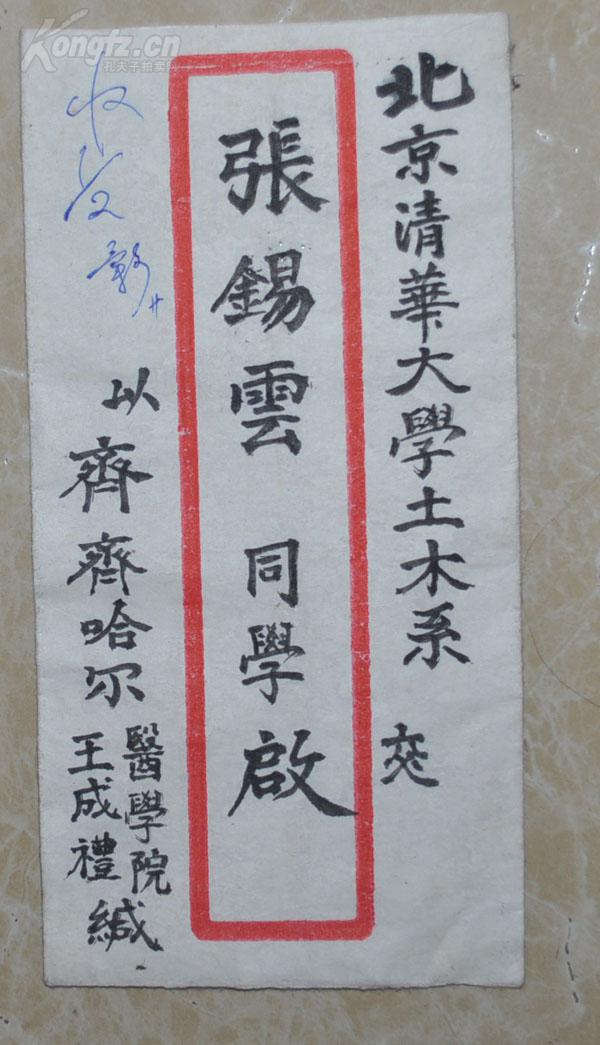 北京清華大學土木系 交
張錫雲 同學啟
以 齊齊哈尔
醫學院
王成禮 緘
Kongfz.cn
孔夫子拍卖网